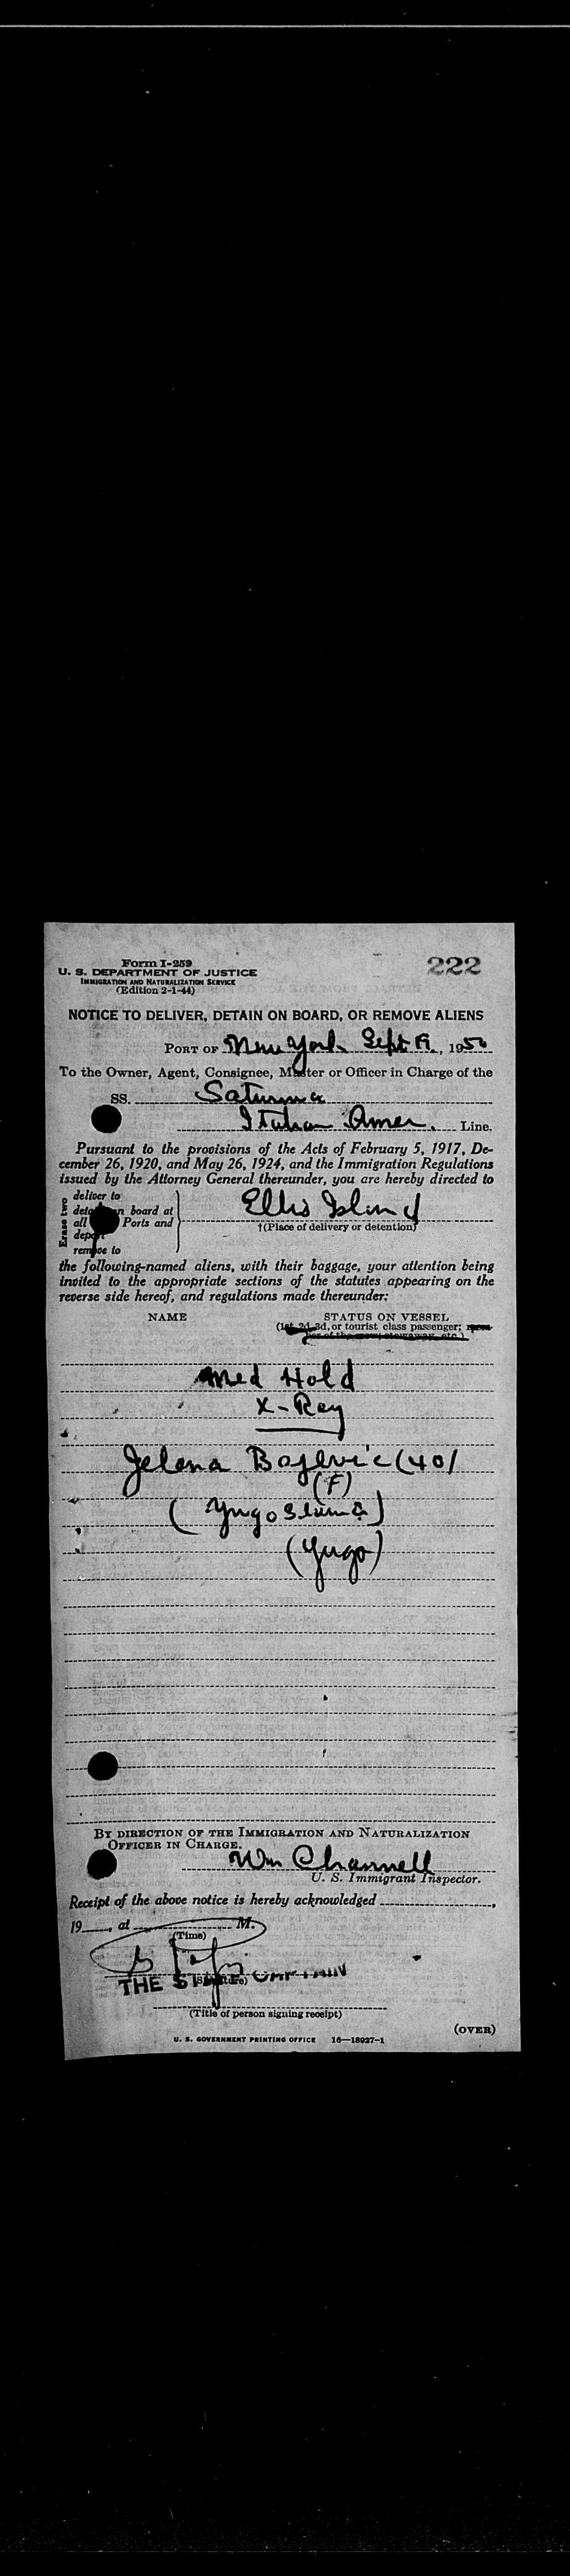 Form I-259
222
U. S. DEPARTMENT OF JUSTICE
IMMIGRATION AND NATURALIZATION SERVICE
(Edition 2-1-44)
NOTICE TO DELIVER, DETAIN ON BOARD, OR REMOVE ALIENS
PORT OF New York Sept 19, 1950
To the Owner, Agent, Consignee, Master or Officer in Charge of the
SS. Saturnia
Italian Amer. Line.
Pursuant to the provisions of the Acts of February 5, 1917, De-
cember 26, 1920, and May 26, 1924, and the Immigration Regulations
issued by the Attorney General thereunder, you are hereby directed to
Erase two
deliver to
on board at
all Ports and
remove to
Ellis Island
†(Place of delivery or detention)
the following-named aliens, with their baggage, your attention being
invited to the appropriate sections of the statutes appearing on the
reverse side hereof, and regulations made thereunder:
NAME
STATUS ON VESSEL
(1st, 2d, 3d, or tourist class passenger;
Med Hold
X-Ray
Jelena (40)
(F)
(Yugoslavia)
(Yugo)
BY DIRECTION OF THE IMMIGRATION AND NATURALIZATION
OFFICER IN CHARGE.
Wm Channell
U. S. Immigrant Inspector.
Receipt of the above notice is hereby acknowledged
19, at M.
(Time)
THE STAFF CAPTAIN
(Signature)
(Title of person signing receipt)
(OVER)
U. S. GOVERNMENT PRINTING OFFICE 16—18927-1